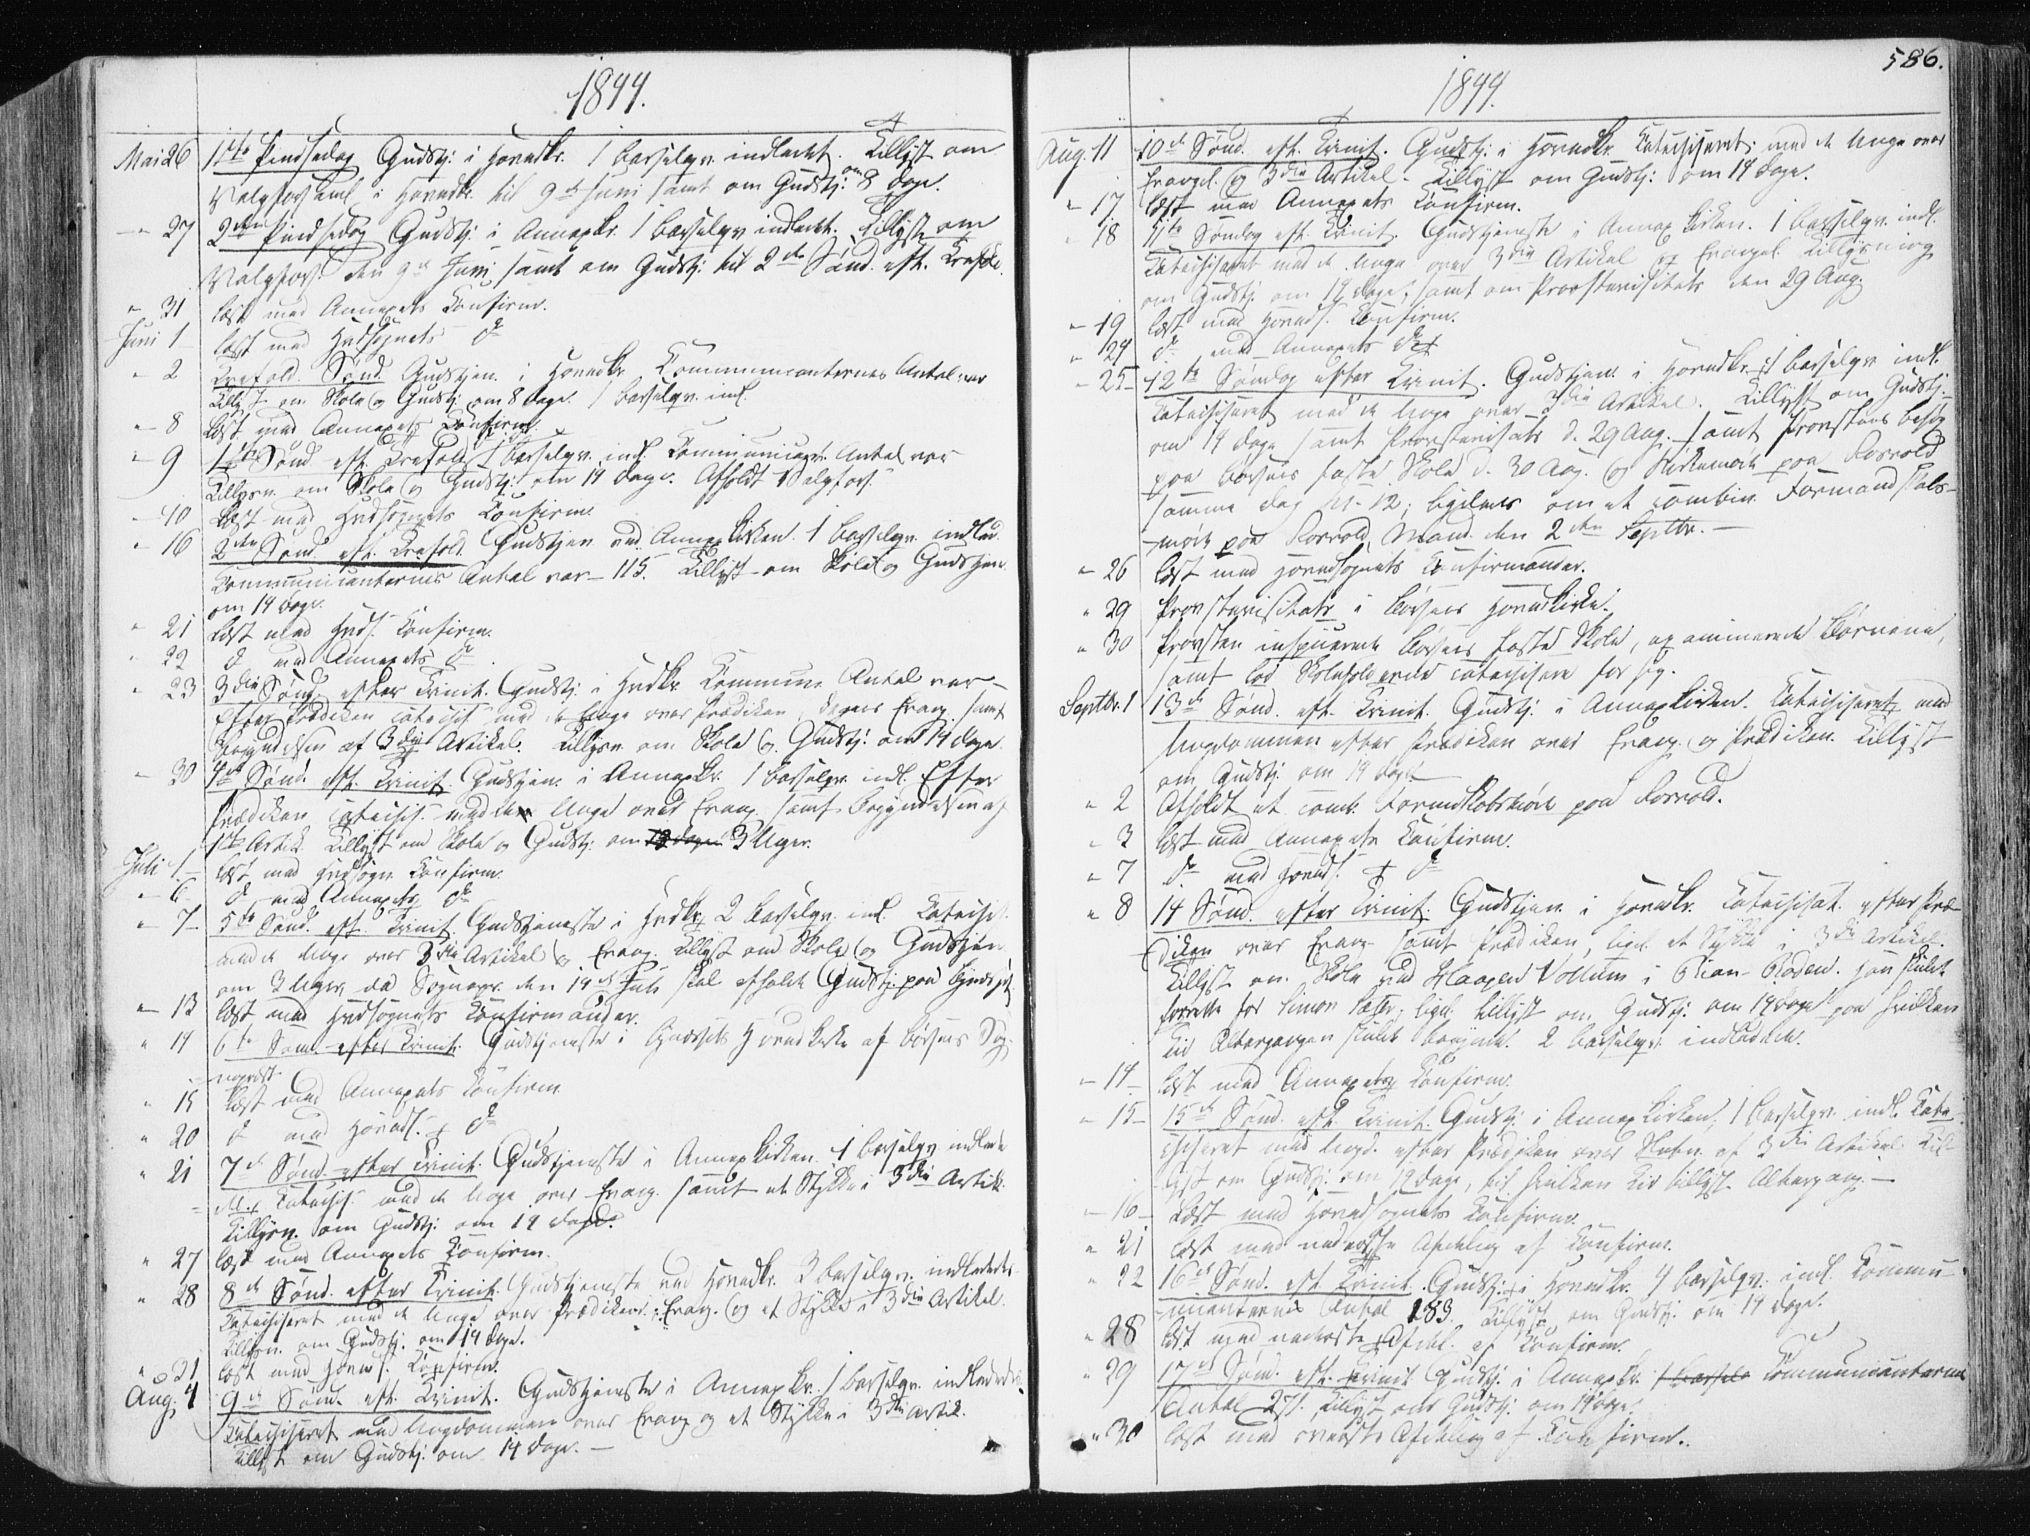 1844.
Mai 26 1ste Pindsedag Gudstj: i Hovedkr. 1 Barselqv. indledet. Tillyst om
Valgforsaml. i Hovedkr. til 9de Juni samt om Gudstj: om 8 Dage.
" 27 2den Pindsedag Gudstj: i Annexkr. 1 Barselqv indledet. Tillyst om
Valgfors. den 9de Juni samt om Gudstj: til 2den Sønd. eft. Trefold.
" 31 læst med Annexets Confirm.
Juni 1 læst med Hvdsognets do
" 2 Trefold. Sønd. Gudstjen. i Hovedkr. Communicanternes Antal var
Tillyst om Skole og Gudstj: om 8 Dage. 1 Barselqv. indl.
" 8 læst med Annexets Confirm.
" 9 1ste Sønd. eft. Trefold. 1 Barselqv. indl. Communicant. Antal var
Tillysn. om Skole og Gudstj: om 14 Dage. Afholdt Valgfors.
" 10 læst med Hvdsognets Confirm.
" 16 2den Sønd. eft. Trefold. Gudstjen ved Annexkirken. 1 Barselqv. indled.
Communicanternes Antal var 115. Tillyst om Skole og Gudstjen.
om 14 Dage.
" 21 læst med Hvds. Confirm.
" 22 do med Annexets do
" 23 3die Sønd. efter Trinit. Gudstj: i Hvdkr. Commun. Antal var
Efter Prædiken catechis. med de Unge over Prædiken, Dagens Evang. samt
Begyndelsen af 3die Artikel. Tillysn om Skole og Gudstj: om 14 Dage.
" 30 4de Sønd. eft. Trinit. Gudstjen. i Annexkr. 1 Barselqv. indl. Efter
Prædiken catechis. med de Unge over Evang. samt Begyndelsen af
1ste Artik. Tillyst om Skole og Gudstj: om 3 Uger.
Juli 1 læst med Hvdsogn. Confirm.
" 6 do med Annexets do
" 7 5te Sønd. eft. Trinit. Gudstjeneste i Hvdkr. 2 Barselqv. indl. Catechis.
med de Unge over 3die Artikel og Evang. Tillyst om Skole og Gudstjen.
om 3 Uger, da Sognepr. den 14de Juli skal afholde Gudstj: paa
" 13 læst med Hvdsognets Confirmander.
" 14 6te Sønd. efter Trinit. Gudstjeneste i Hovedkirke af Børsens Sog-
nepræst.
" 15 læst med Annexets Confirm.
" 20 do med Hoveds. do
" 21 7de Sønd. efter Trinit. Gudstjeneste i Annexkirken 1 Barselqv indledet
Catechis. med de Unge over Evang. samt et Stykke i 3die Artik.
Tillysn. om Gudstj: om 14 Dage.
" 27 læst med Annexets Confirm.
" 28 8de Sønd. efter Trinit. Gudstjeneste ved Hovedkr. 2 Barselqv. indlededes
Catechiseret med de Unge over Prædiken, Evang. og et Stykke i 3die Artikel.
Tillysn. om Gudstj. om 14 Dage.
" 31 læst med Hoveds. Confirm.
Aug. 4 9de Sønd. eft. Trinit. Gudstjeneste i Annexkr. 1 Barselqv. indlededes
Catechiseret med Ungdommen over Evang og et Stykke i 3die Artik.
Tillyst om Gudstj: om 14 Dage. —
586.
1844.
Aug. 11 10de Sønd. eft. Trinit. Gudstj: i Hovedkr. Catechiseret med de Unge over
Evangel. og 3die Artikel. Tillyst om Gudstj: om 14 Dage.
" 17 læst med Annexets Confirm.
" 18 11te Søndag eft. Trinit. Gudstjeneste i Annexkirken. 1 Barselqv. indl.
Catechiseret med de Unge over 3die Artikel og Evangel. Tillysning
om Gudstj: om 14 Dage, samt om Provstevisitats den 29 Aug.
" 19 læst med Hoveds. Confirm.
" 24 do med Annexets do
" 25 12te Søndag efter Trinit. Gudstjen. i Hovedkr. 1 Barselqv indl.
Catechiseret med de Unge over 3die Artikel. Tillyst om Gudstj:
om 14 Dage samt Provstevisitats d. 29 Aug. samt Provstens Besøg
paa Børsens faste Skole d. 30 Aug. og paa Rosvold
samme Dag Kl. 12; ligeledes om et combin. Formandskabs-
møde paa Rosvold, Mand. den 2den Septbr. —
" 26 læst med Hovedsognets Confirmander.
" 29 Provstevisitats i Børsens Hovedkirke.
" 30 Provsten inspicerede Børsens faste Skole, examinerede Børnene,
samt lod Skoleholderne catechisere for sig.
Septbr. 1 13de Sønd. eft. Trinit. Gudstj: i Annexkirken. Catechiseret med
Ungdommen efter Prædiken over Evang. og Prædiken. Tillyst
om Gudstj: om 14 Dage
" 2 Afholdt et comb. Formdskabsmøde paa Rosvold.
" 3 læst med Annexets Confirm.
" 7 do med Hoveds. do
" 8 14 Sønd. efter Trinit. Gudstjen i Hovedkr. Catechisat. efter Præ-
diken over Evang. samt Prædiken, ligel. et Stykke i 3die Artikel.
Tillyst om Skole ved Haagen Vollum i Rian-Roden. Han skulde
forrette for Simon Sæter; ligel. tillyst om Gudstj: om 14 Dage paa hvilken
Tid Altergangen skulde begynde. 2 Barselqv: indlededes.
" 14 læst med Annexets Confirm.
" 15 15de Sønd. eft. Trinit. Gudstj: i Annexkirken, 1 Barselqv. indl. Cate-
chiseret med Ungd. efter Prædiken over Slutn. af 3die Artikel. Til-
lyst om Gudstj: om 14 Dage, til hvilken Tid tillyst Altergang. —
" 16 læst med Hovedsognets Confirm.
" 21 læst med nederste Afdeling af Confirm.
" 22 16de Sønd. eft. Trinit. Gudstj: i Hovedkr. 4 Barselqv. indl. Commu-
nicanternes Antal 183. Tillyst om Gudstj: om 14 Dage.
" 28 læst med nederste Afdel. af Confirm.
" 29 17de Sønd. eft. Trinit. Gudstj. i Annexkr. 1 Barsels Communicanternes
Antal 271. Tillyst om Gudstj: om 14 Dage.
" 30 læst med øverste Afdeling af Confirm.